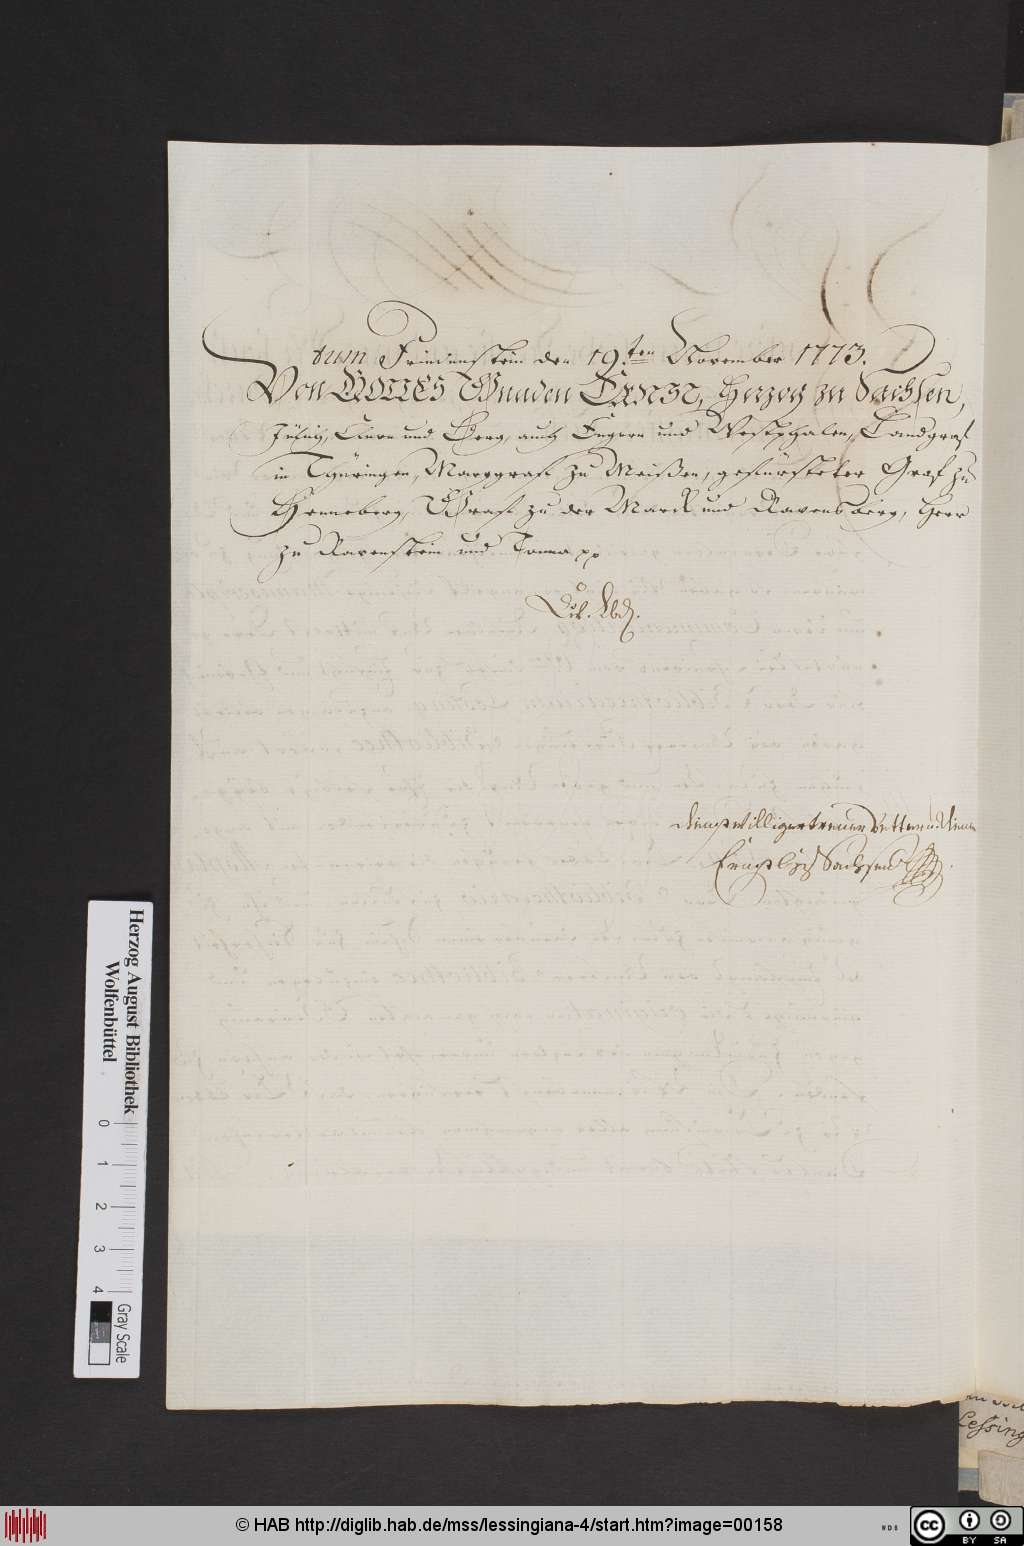 tum Friedenstein den 19ten November 1773.
Von GOTTES Gnaden Ernst, Herzog zu Sachsen,
Jülich, Cleve und Berg, auch Engern und Westphalen, Landgraf
in Thüringen, Marggraf zu Meißen, gefürsteter Graf zu
Henneberg, Graf zu der Marck und Ravensberg, Herr
zu Ravenstein und Tonna pp
dienstwilliger treuer Vetter u. Diener
Ernst HzSachsen
Herzog August Bibliothek
Wolfenbüttel
0 1 2 3 4
Gray Scale
Lessing
© HAB http://diglib.hab.de/mss/lessingiana-4/start.htm?image=00158
cc BY SA